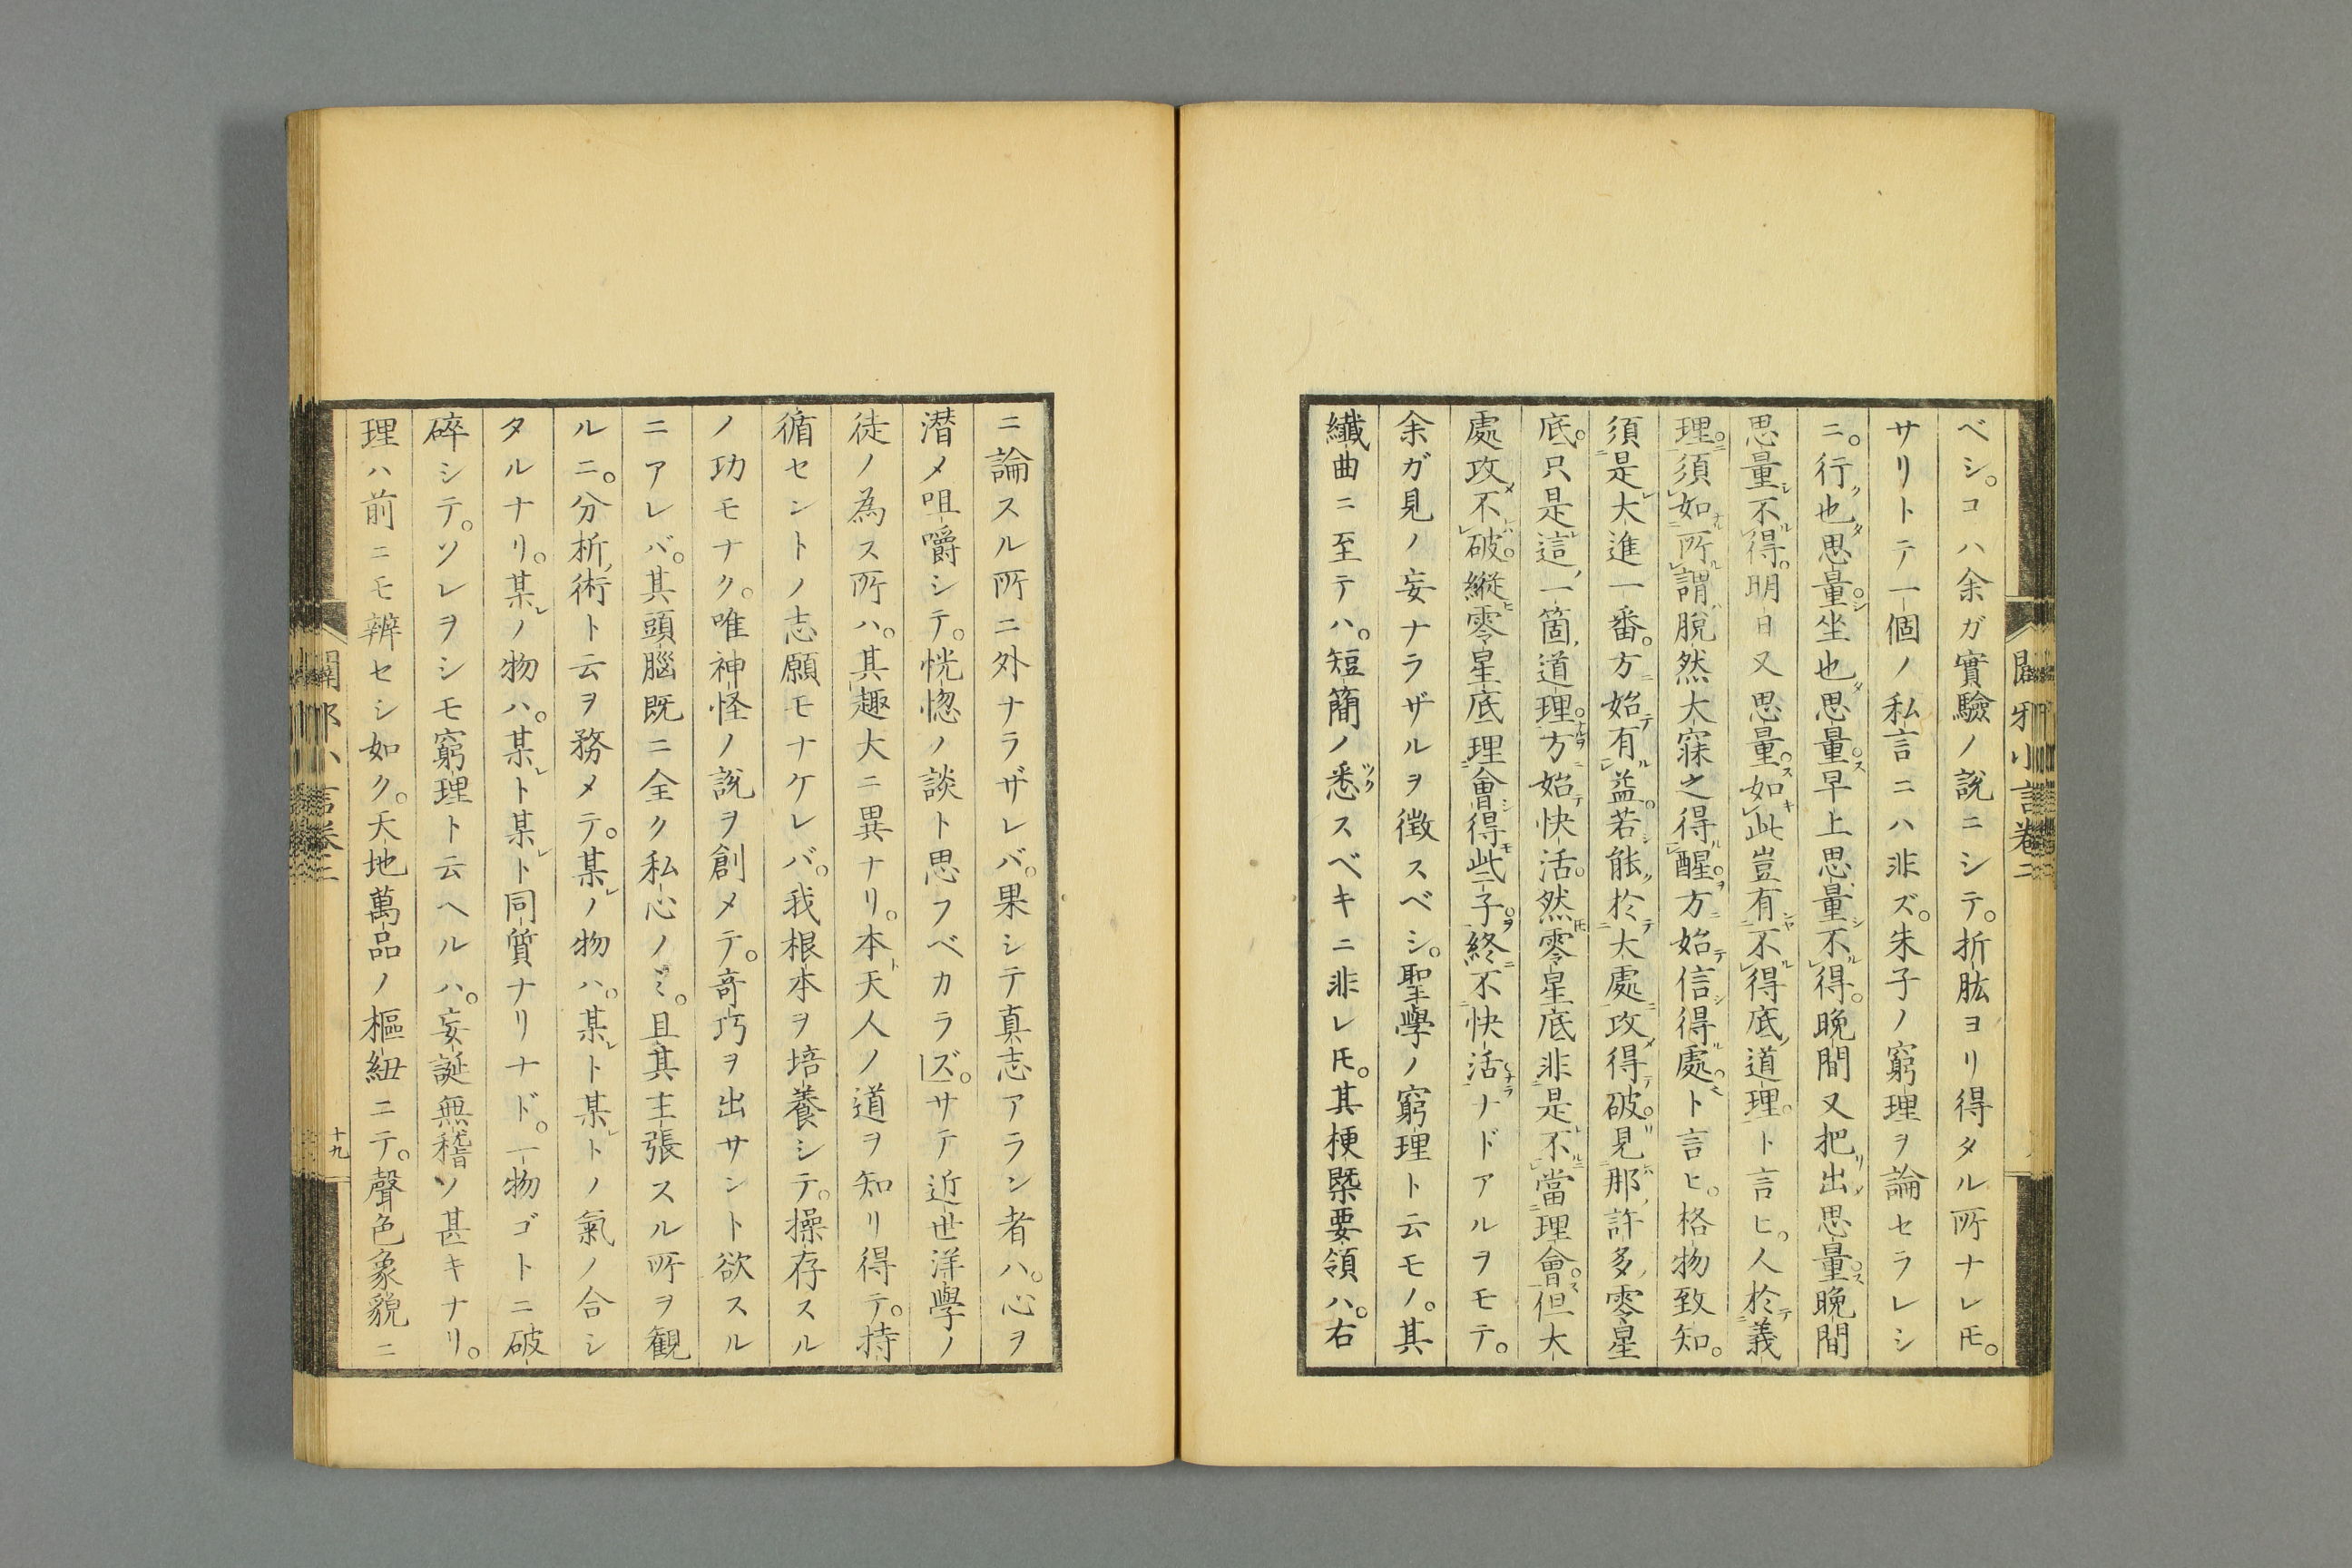 闢邪小言卷二
ベシ。コハ余ガ實驗ノ說ニシテ。折肱ヨリ得タル所ナレ𪜈。
サリトテ一個ノ私言ニハ非ズ。朱子ノ窮理ヲ論セラレシ
ニ。行也思量。坐也思量。早上思量不得。晩間又把出思量。晩間
思量不得。明日又思量。如此豈有不得底道理。ト言ヒ。人於義
理。須如所謂脫然大寐之得醒。方始信得處。ト言ヒ。格物致知。
須是大進一番。方始有益。若能於大處攻得破。見那許多零星
底。只是這一箇道理。方始快活。然零星底非是不當理會。但大
處攻不破。縱零星底理會得些子。終不快活ナドアルヲモテ。
余ガ見ノ妄ナラザルヲ徵スベシ。聖學ノ窮理ト云モノ。其
纖曲ニ至テハ。短簡ノ悉スベキニ非レ𪜈。其梗槩要領ハ。右
ニ論スル所ニ外ナラザレバ。果シテ真志アラン者ハ。心ヲ
潜メ咀嚼シテ。恍惚ノ談ト思フベカラズ。サテ近世洋學ノ
徒ノ為ス所ハ。其趣大ニ異ナリ。本天人ノ道ヲ知リ得テ。持
循セントノ志願モナケレバ。我根本ヲ培養シテ。操存スル
ノ功モナク。唯神怪ノ說ヲ創メテ。奇巧ヲ出サント欲スル
ニアレバ。其頭腦既ニ全ク私心ノミ。且其主張スル所ヲ観
ルニ。分析術ト云ヲ務メテ。某ノ物ハ。某ト某トノ氣ノ合シ
タルナリ。某ノ物ハ。某ト某ト同質ナリナド。一物ゴトニ破
碎シテ。ソレヲシモ窮理ト云ヘルハ。妄誕無稽ソ甚キナリ。
理ハ前ニモ辨セシ如ク。天地萬品ノ樞紐ニテ。聲色象貌ニ
闢邪小言卷二
十九